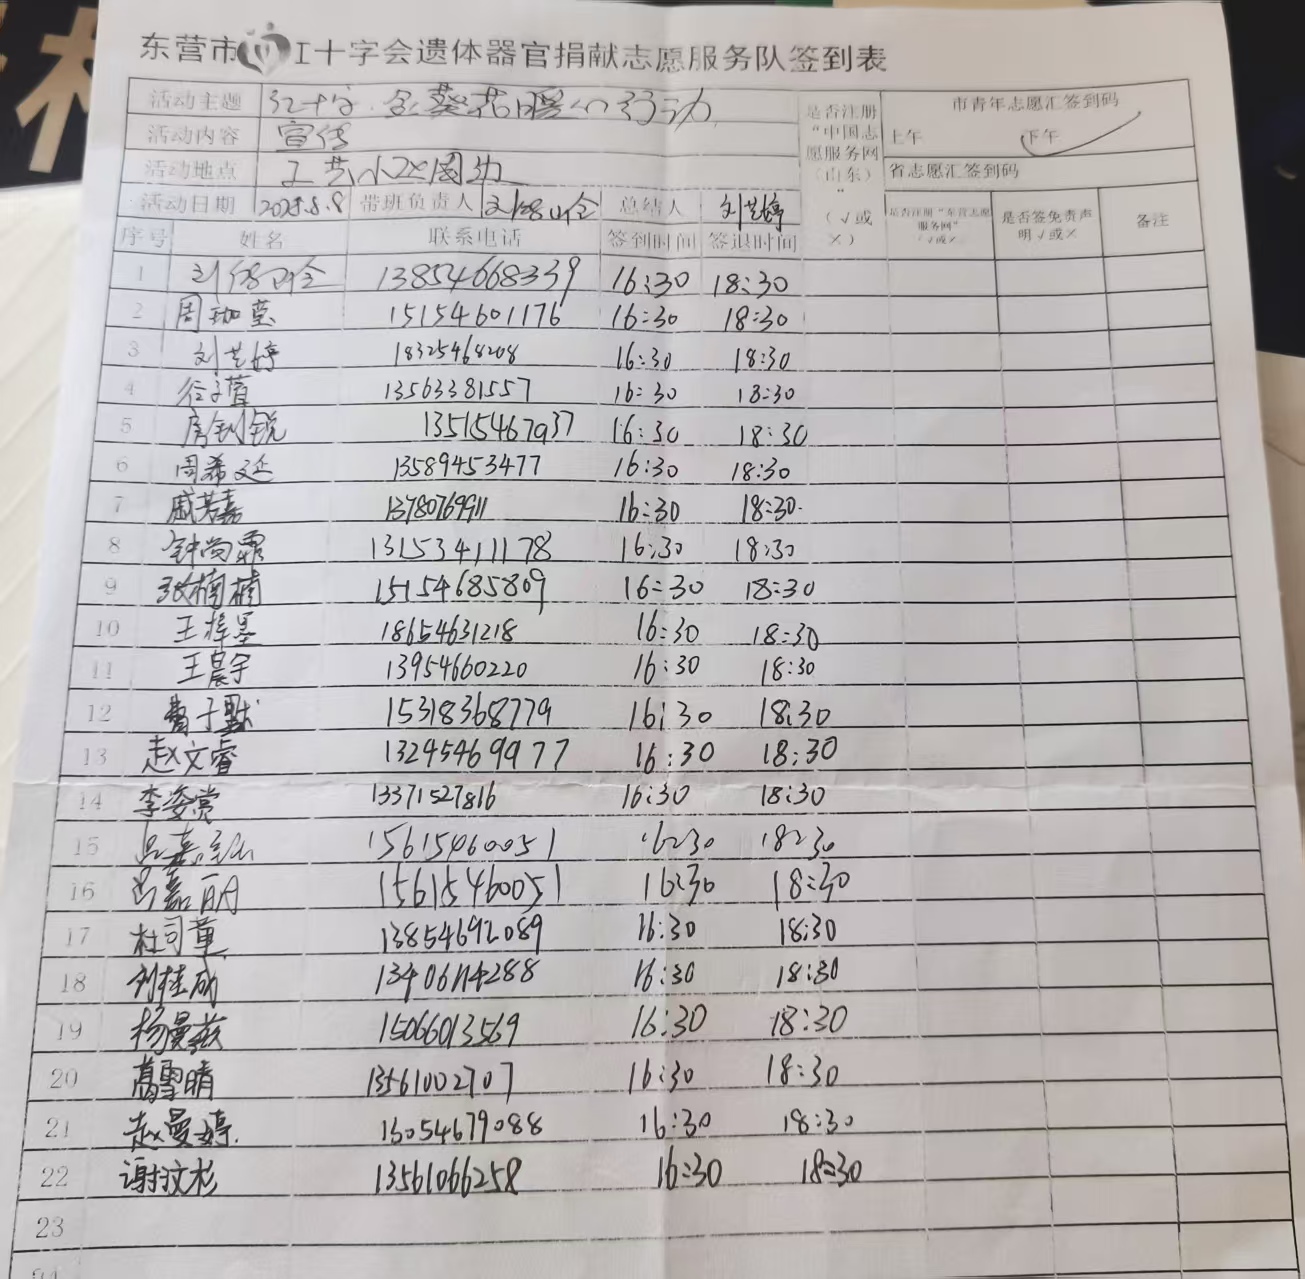 东营市 工十字会遗体器官捐献志愿服务队签到表
活动主题 红十字 金葵花暖心行动 是否注册“中国志愿服务网(山东)”(√或×) 市青年志愿汇签到码
上午 下午
活动内容 宣传
活动地点 工艺小区周边 省志愿汇签到码
活动日期 2025.8.8 带班负责人 总结人 刘艺婷 是否注册“东营志愿服务网”(√或×) 是否签免责声明√或× 备注
序号 姓名 联系电话 签到时间 签退时间
1 13854668339 16:30 18:30
2 周珈莹 15154601176 16:30 18:30
3 刘艺婷 18325468208 16:30 18:30
4 13563381557 16:30 18:30
5 房钊锐 13515467937 16:30 18:30
6 周希延 13589453477 16:30 18:30
7 戚芳嘉 13780769911 16:30 18:30
8 钟尚霖 13153411178 16:30 18:30
9 张楠楠 15154685809 16:30 18:30
10 王梓墨 18654631218 16:30 18:30
11 王晨宇 13954660220 16:30 18:30
12 曹子默 15318368779 16:30 18:30
13 赵文睿 13295469977 16:30 18:30
14 李姿赏 13371527816 16:30 18:30
15 15615460051 16:30 18:30
16 吕嘉丽 15615460051 16:30 18:30
17 杜司童 13854692089 16:30 18:30
18 刘桂成 16:30 18:30
19 杨曼兹 15066013569 16:30 18:30
20 葛雪晴 13561002707 16:30 18:30
21 赵曼婷 13054679088 16:30 18:30
22 谢汶杉 13561066258 16:30 18:30
23